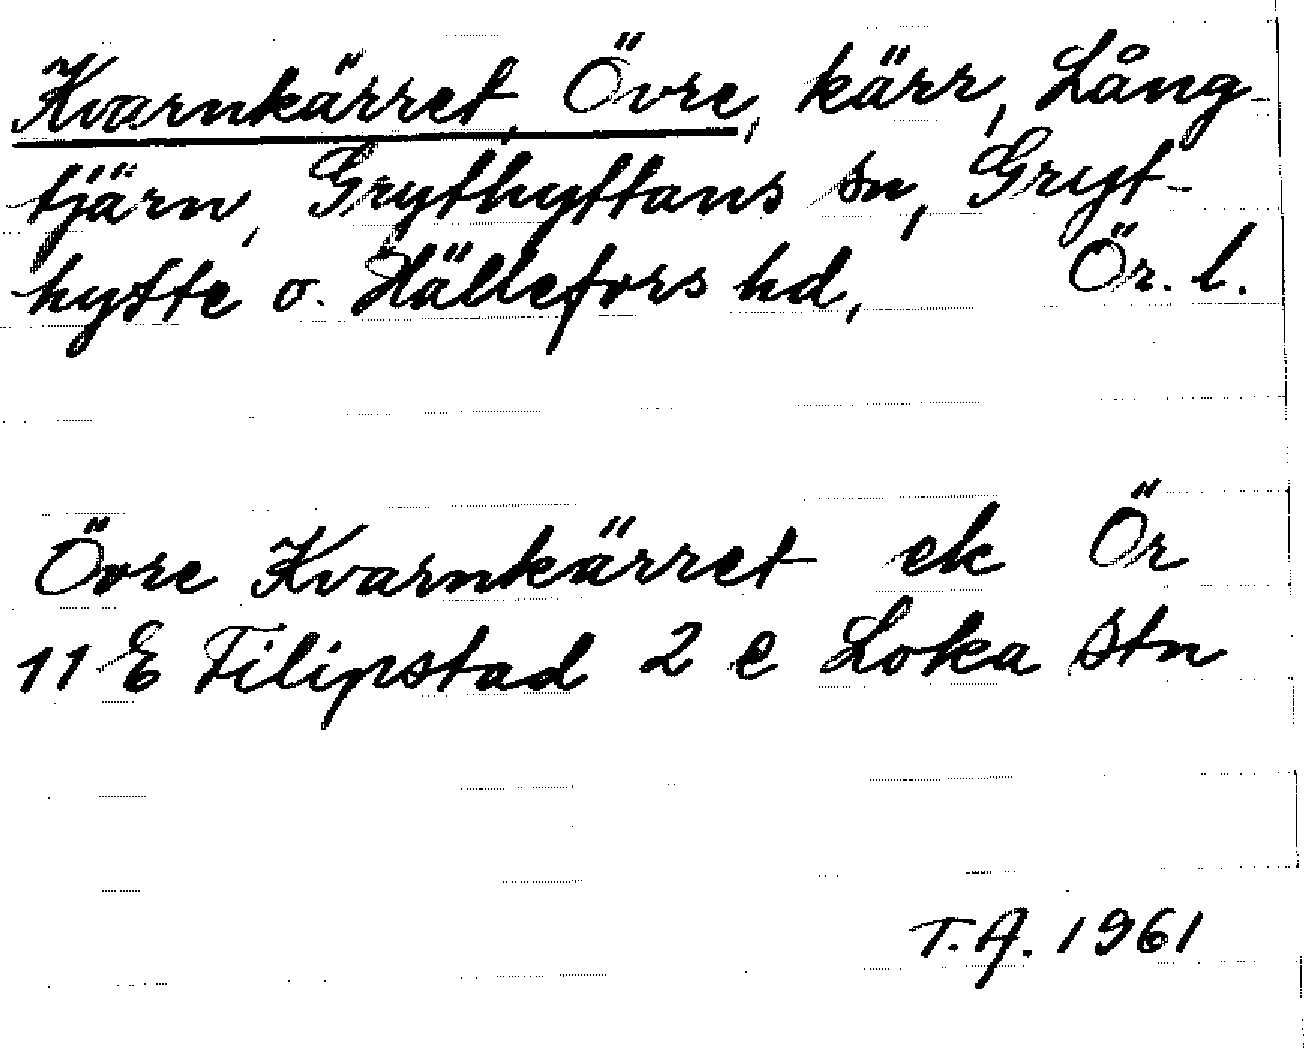 Kvarnkärret, Övre, kärr, Lång-
tjärn, Grythyttans sn, Gryt-
hytte o. Hällefors hd, Ör. l.
Övre Kvarnkärret ek Ör
11 E Filipstad 2 e Loka Stn
T.A. 1961